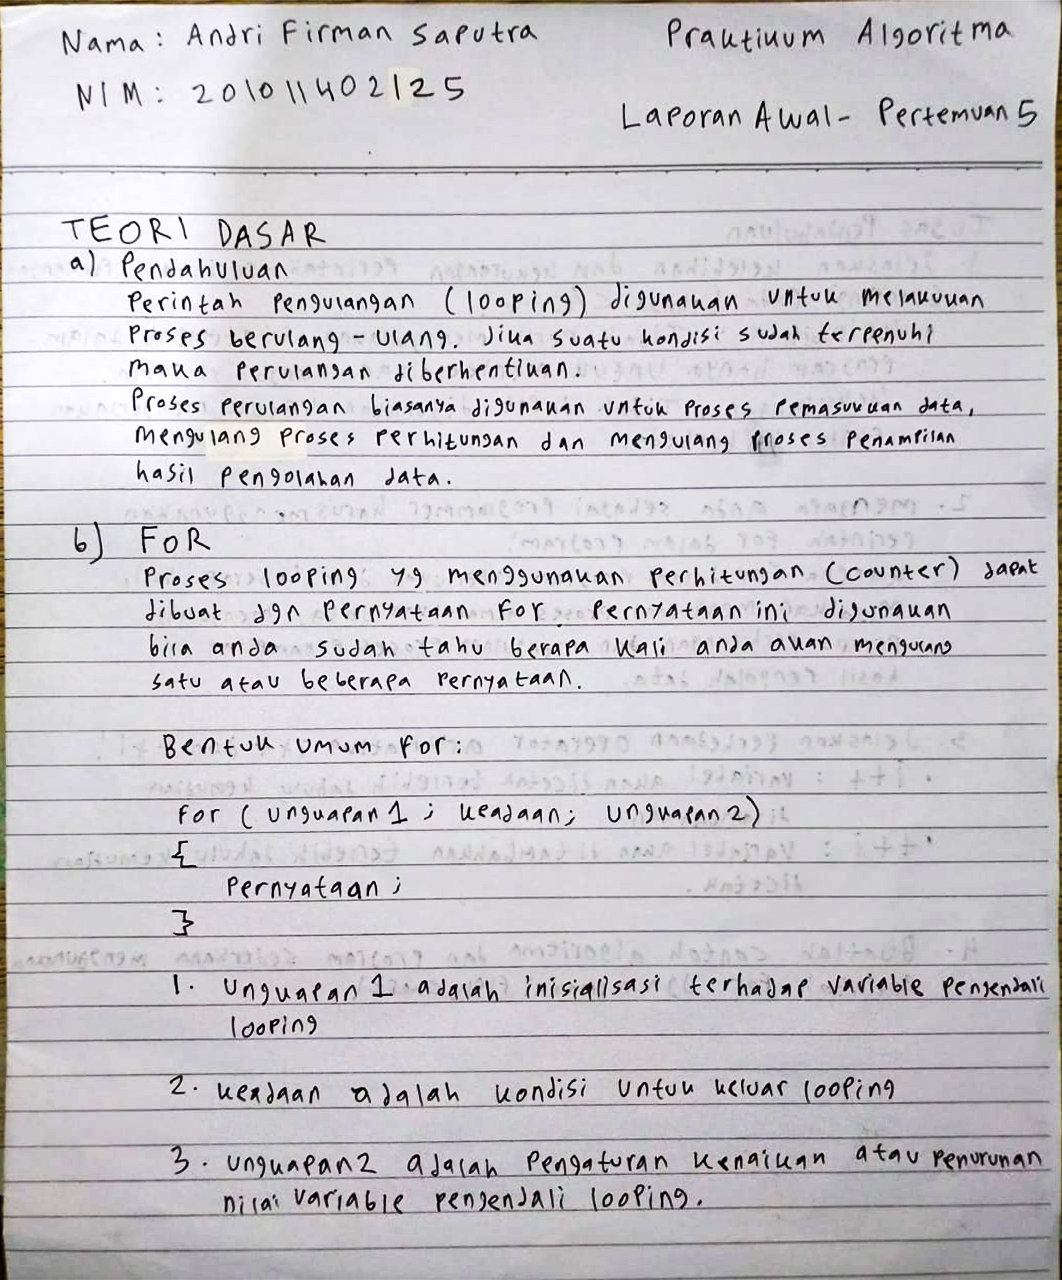 Nama : Andri Firman Saputra
Praktikum Algoritma
NIM : 201011402125
Laporan Awal - Pertemuan 5
TEORI DASAR
a) Pendahuluan
Perintah Pengulangan (looping) digunakan untuk melakukan
Proses berulang-ulang. Jika suatu kondisi sudah terpenuhi
maka Perulangan diberhentikan.
Proses Perulangan biasanya digunakan untuk Proses Pemasukkan data,
mengulang Proses Perhitungan dan mengulang Proses Penampilan
hasil Pengolahan data.
b) FOR
Proses looping yg menggunakan Perhitungan (counter) dapat
dibuat dgn Pernyataan For. Pernyataan ini digunakan
bila anda sudah tahu berapa kali anda akan mengulang
satu atau beberapa Pernyataan.
Bentuk umum For :
For ( Ungkapan 1 ; keadaan; Ungkapan 2)
{
Pernyataan ;
}
1. Ungkapan 1 adalah inisialisasi terhadap variable Pengendali
looping
2. keadaan adalah kondisi untuk keluar looping
3. Ungkapan2 adalah Pengaturan kenaikan atau Penurunan
nilai variable pengendali looping.